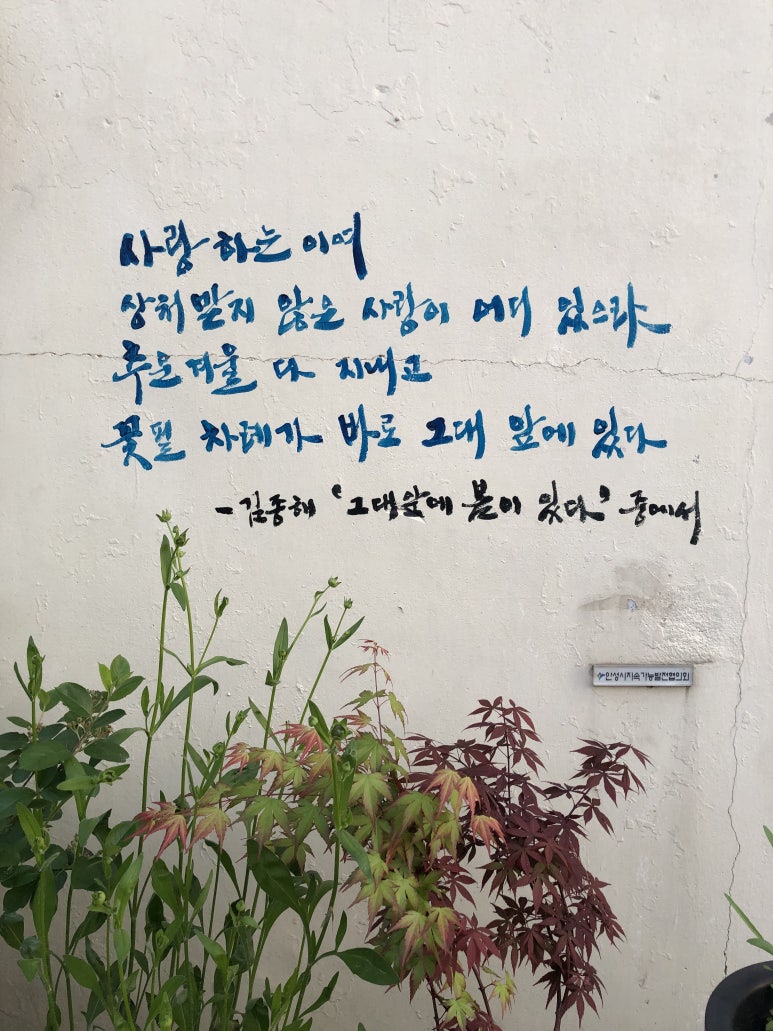 사랑하는 이여
상처받지 않은 사랑이 어디 있으랴
추운겨울 다 지내고
꽃필 차례가 바로 그대 앞에 있다
-김종해 "그대앞에 봄이 있다" 중에서
안성시지속가능발전협의회